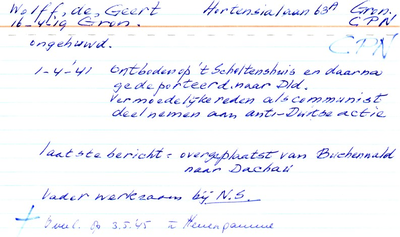 Wolff, de, Geert Hortensialaan 63A Gron.
16-4-19 Gron. CPN
ongehuwd. CPN
1-4-'41 Ontboden op 't Scholtenshuis en daarna
gedeporteerd naar Dld.
Vermoedelyke reden als communist
deelnemen aan anti-Duitse actie
laatste bericht = overgeplaatst van Buchenwald
naar Dachau
Vader werkzaam bij N.S.
overl. 3.5.'45